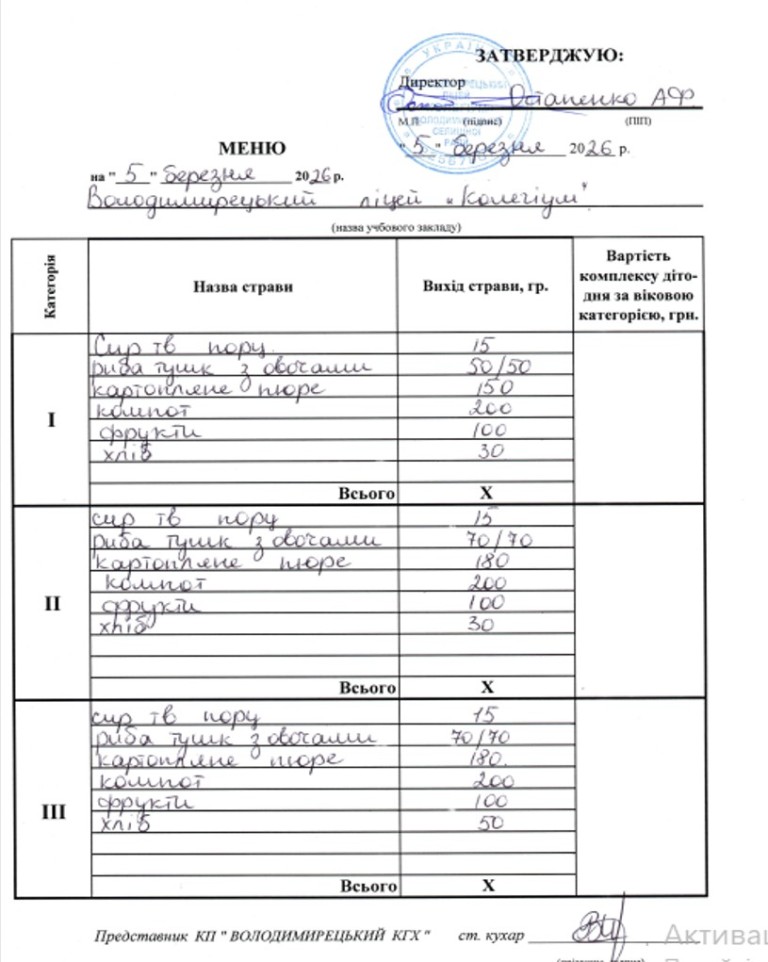 ЗАТВЕРДЖУЮ:
Директор
Остапенко А.Ф.
М.П (підпис) (ПІП)
"5" березня 2026 р.
МЕНЮ
на "5" березня 2026 р.
Володимирецький ліцей "Колегіум"
(назва учбового закладу)
Категорія Назва страви Вихід страви, гр. Вартість комплексу діто-дня за віковою категорією, грн.
I
Сир тв порц 15
риба тушк з овочами 50/50
картопляне пюре 150
компот 200
фрукти 100
хліб 30
Всього Х
II
сир тв порц 15
риба тушк з овочами 70/70
картопляне пюре 180
компот 200
фрукти 100
хліб 30
Всього Х
III
сир тв порц 15
риба тушк з овочами 70/70
картопляне пюре 180
компот 200
фрукти 100
хліб 50
Всього Х
Представник КП " ВОЛОДИМИРЕЦЬКИЙ КГХ " ст. кухар